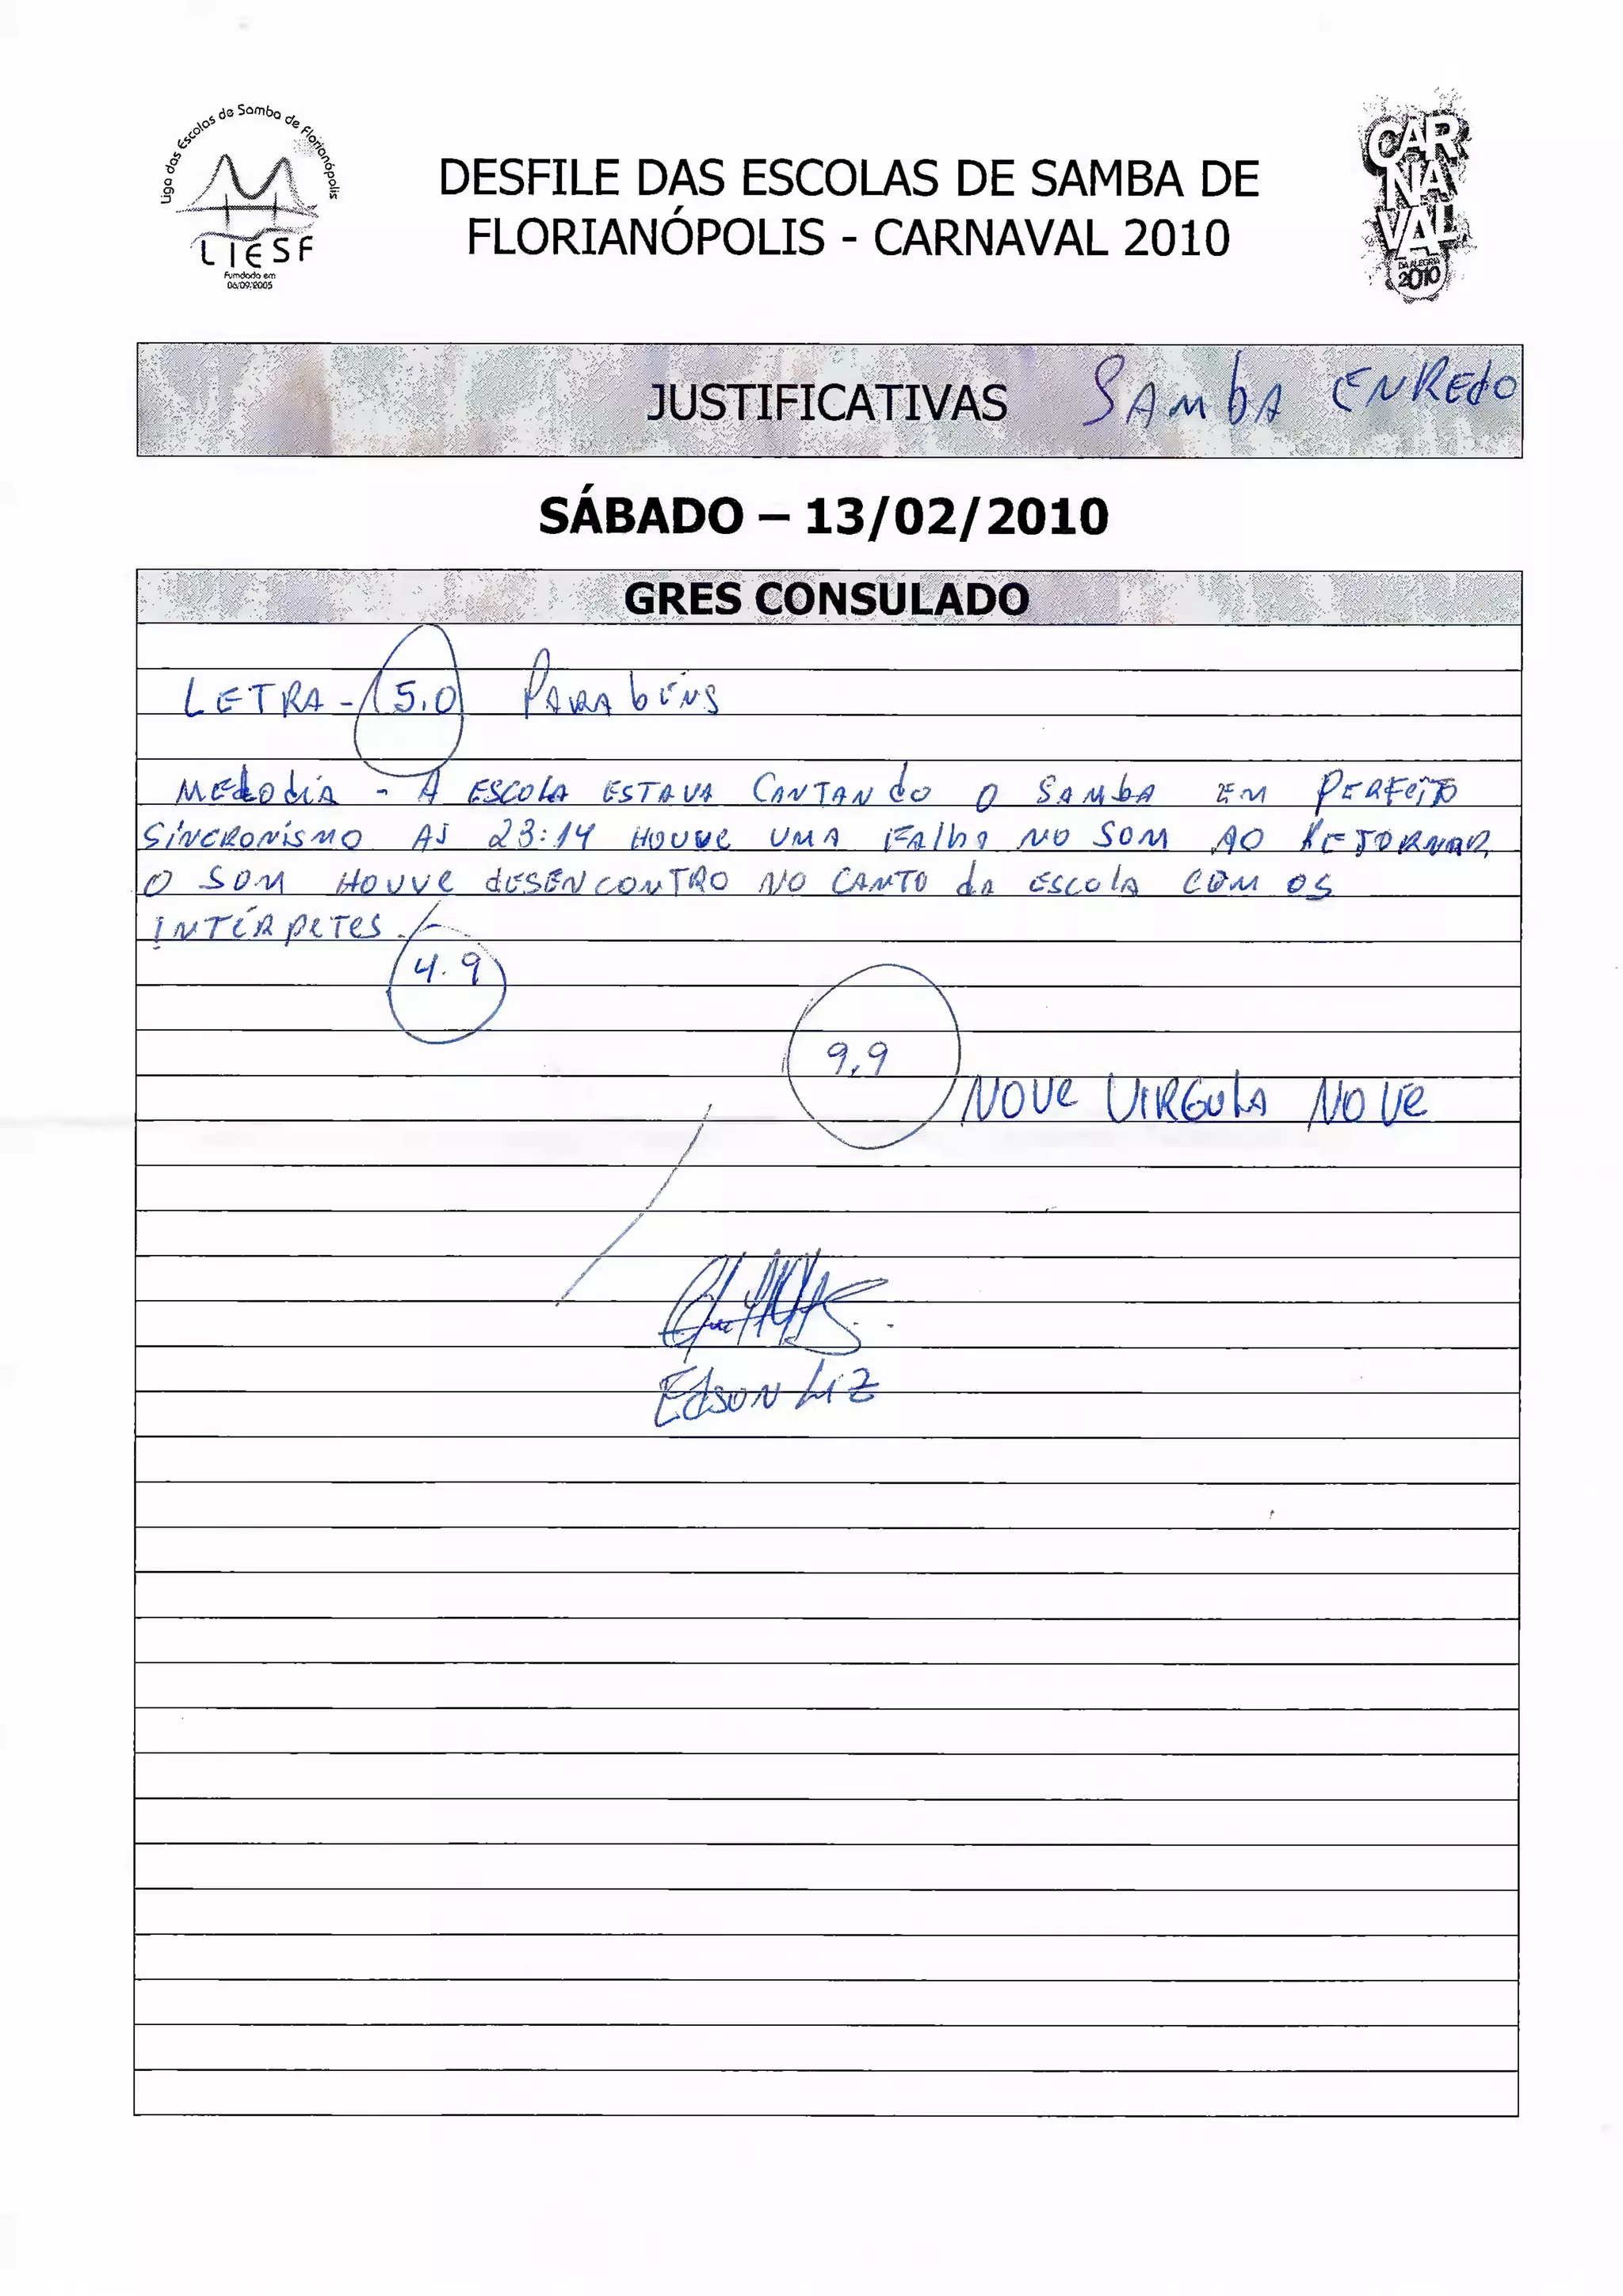 Liga das Escolas de Samba de Florianópolis
LIESF
Fundada em
06/09/2005
DESFILE DAS ESCOLAS DE SAMBA DE
FLORIANÓPOLIS - CARNAVAL 2010
CAR
NA
VAL
DA ALEGRIA
2010
JUSTIFICATIVAS SAMbA ENREdO
SÁBADO – 13/02/2010
GRES CONSULADO
LETRA - 5,0 PARAbÉNS
MElOdiA - A ESCOlA ESTAVA CANTANdO O SAMbA EM PERFEiTO
SiNCRONiSMO AS 23:14 HOUVE UMA FAlhA NO SOM AO RETORNAR
O SOM HOUVE dESENCONTRO NO CANTO dA ESCOlA COM OS
INTÉRPETES.
4.9
9,9
NOVE VIRGUlA NOVE
EdSON LiZ